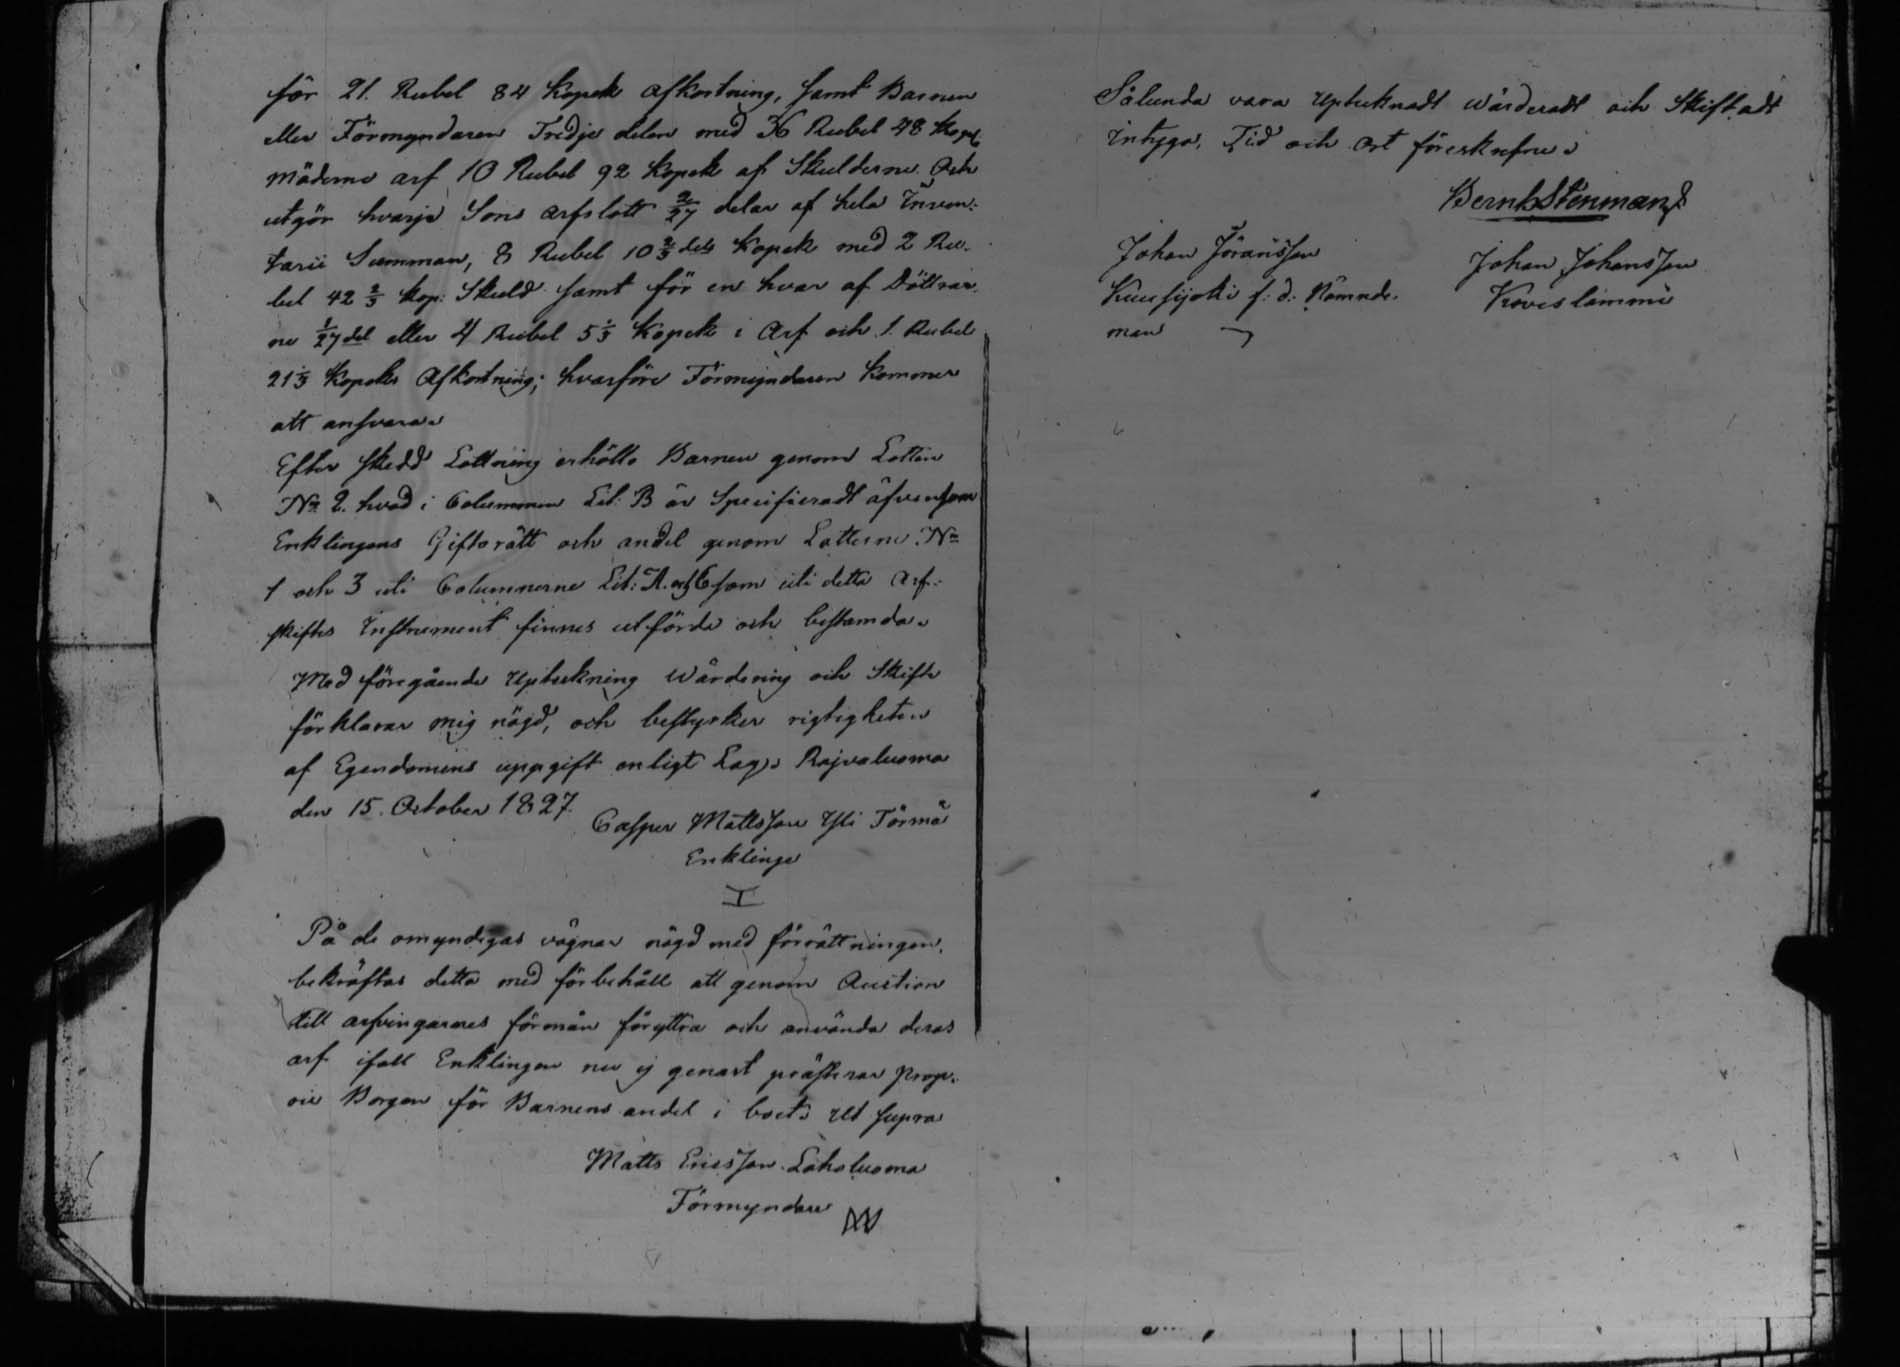 för 21. Rubel 84 kopek afkortning, samt Barnen
eller Förmyndaren Tredje delen med 36 Rubel 48 kopek
möderne arf 10 Rubel 92 kopek af Skulderne. Och
utgör hvarje Sons arfslott 2/27 delar af hela Inven:
tarii Summan, 8 Rubel 10 2/3 dels kopek med 2 Ru-
bel 42 2/3 kop: Skuld samt för en hvar af Döttrar-
ne 1/27 del eller 4 Rubel 5 1/3 kopek i arf och 1. Rubel
21 1/3 kopeks afkortning; hvarföre Förmyndaren kommer
att ansvara.
Efter skedd Lottning erhöllo Barnen genom Lotten
No 2. hvad i Columnen Lit: B är Specificeradt äfvensom
Enklingens Giftorätt och andel genom Lotterne No
1 och 3 uti Columnerne Lit: A. och C som uti detta Arf-
skiftes Instrument finnes utförde och bestämda.
Med föregående Uptekning Wärdering och Skifte
förklarar mig nöjd, och bestyrker rigtigheten
af Egendomens uppgift enligt Lag; Rajvaluoma
den 15. October 1827.
Casper Mattsson Yli Törmä
Enklinge
På de omyndigas vägnar nögd med förrättningen,
bekräftas detta med förbehåll att genom Auction
till arfvingarnes förmån föryttra och använda deras
arf ifall Enklingen nu ej genast præsterar prop-
rie Borgen för Barnens andel i boet. Ut supra
Matts Ericsson Laholuoma
Förmyndare
Sålunda vara Uptecknadt Wärderadt och Skiftadt
intyga, Tid och Ort föreskrefne.
Bernh Stenman
Johan Jöransson
Kuusijoki f: d: Nämnde-
man
Johan Johansson
Koveslammi